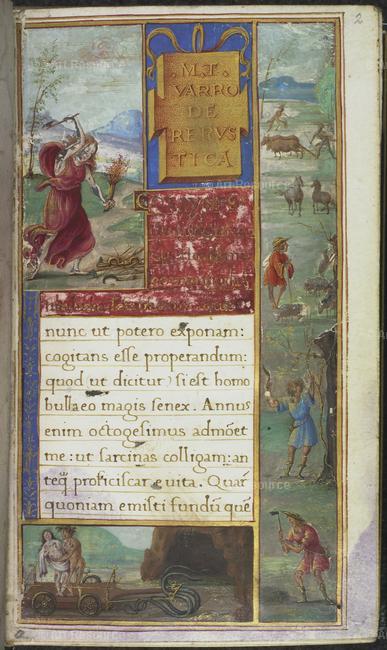 2
.M.T.
VARRO
DE
RERVS
TICA
nunc ut potero exponam:
cogitans esse properandum:
quod ut dicitur) si est homo
bulla eo magis senex. Annus
enim octogesimus admõet
me: ut sarcinas colligam: an
teq̃ proficiscar e uita. Quar̃
quoniam emisti fundũ quẽ